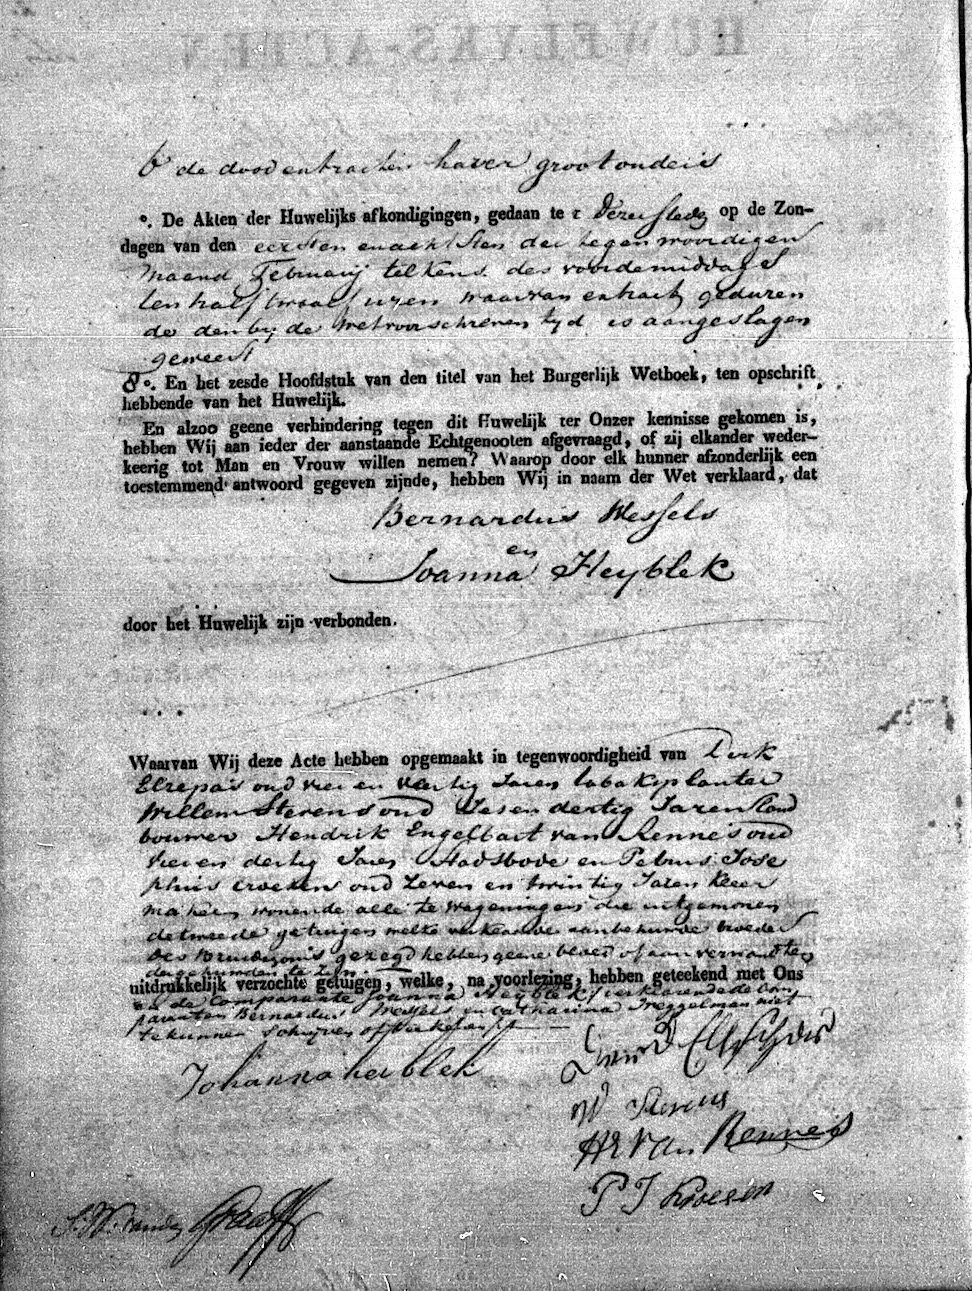 6 de dood extracten haver grootouders
°. De Akten der Huwelijks afkondigingen, gedaan te dezer Stede op de Zon-
dagen van den eersten en achtsten der tegenwoordigen
maand February telkens des voordemiddags
ten half twaalf uren waarvan extract geduren
de den by de Wet voorschreven tyd is aangeslagen
geweest
8°. En het zesde Hoofdstuk van den titel van het Burgerlijk Wetboek, ten opschrift
hebbende van het Huwelijk.
En alzoo geene verhindering tegen dit Huwelijk ter Onzer kennisse gekomen is,
hebben Wij aan ieder der aanstaande Echtgenooten afgevraagd, of zij elkander weder-
keerig tot Man en Vrouw willen nemen? Waarop door elk hunner afzonderlijk een
toestemmend antwoord gegeven zijnde, hebben Wij in naam der Wet verklaard, dat
Bernardus Wessels
en
Joanna Heyblek
door het Huwelijk zijn verbonden.
Waarvan Wij deze Acte hebben opgemaakt in tegenwoordigheid van Dirk
oud vier en veertig Jaren tabaksplanter
Willem Stevens oud Zesen dertig Jaren Land
bouwer Hendrik Engelbart van Rennes oud
vier en dertig Jaren Stadsbode en Petrus Jose
phus Croesen oud zeven en twintig Jaren kleer
maker wonende alle te Wageningen die uitgenomen
de tweede getuigen welke verklaarde aanbehuwde broeder
des Bruidegoms gezegd hebben geene bloed of aan verwandten
der gehuwden te zijn
uitdrukkelijk verzochte getuigen, welke, na voorlezing, hebben geteekend met Ons
en de Comparante Joanna Heyblek, verklarende de Com
paranten Bernardus Wessels en Catharina Treggelman niet
te kunnen schrijven
Johanna heiblek
W Stevens
HE Van Rennes
P J Kroesen